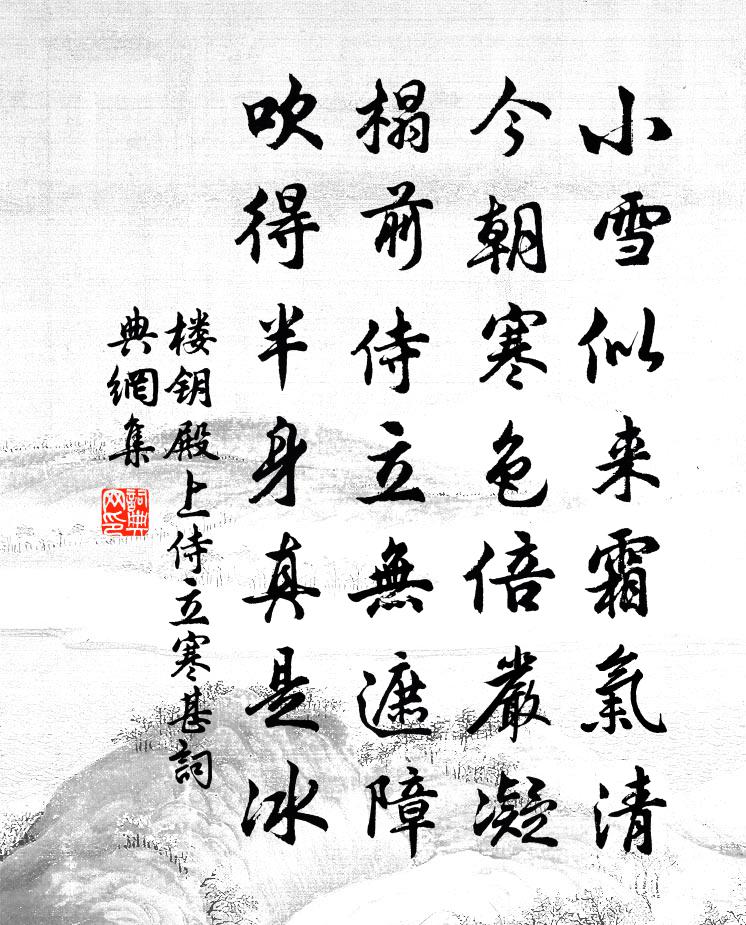 小雪似来霜氣清
今朝寒色倍嚴凝
榻前侍立無遮障
吹得半身真是冰
楼钥殿上侍立寒甚詞
典網集
詞典
网印